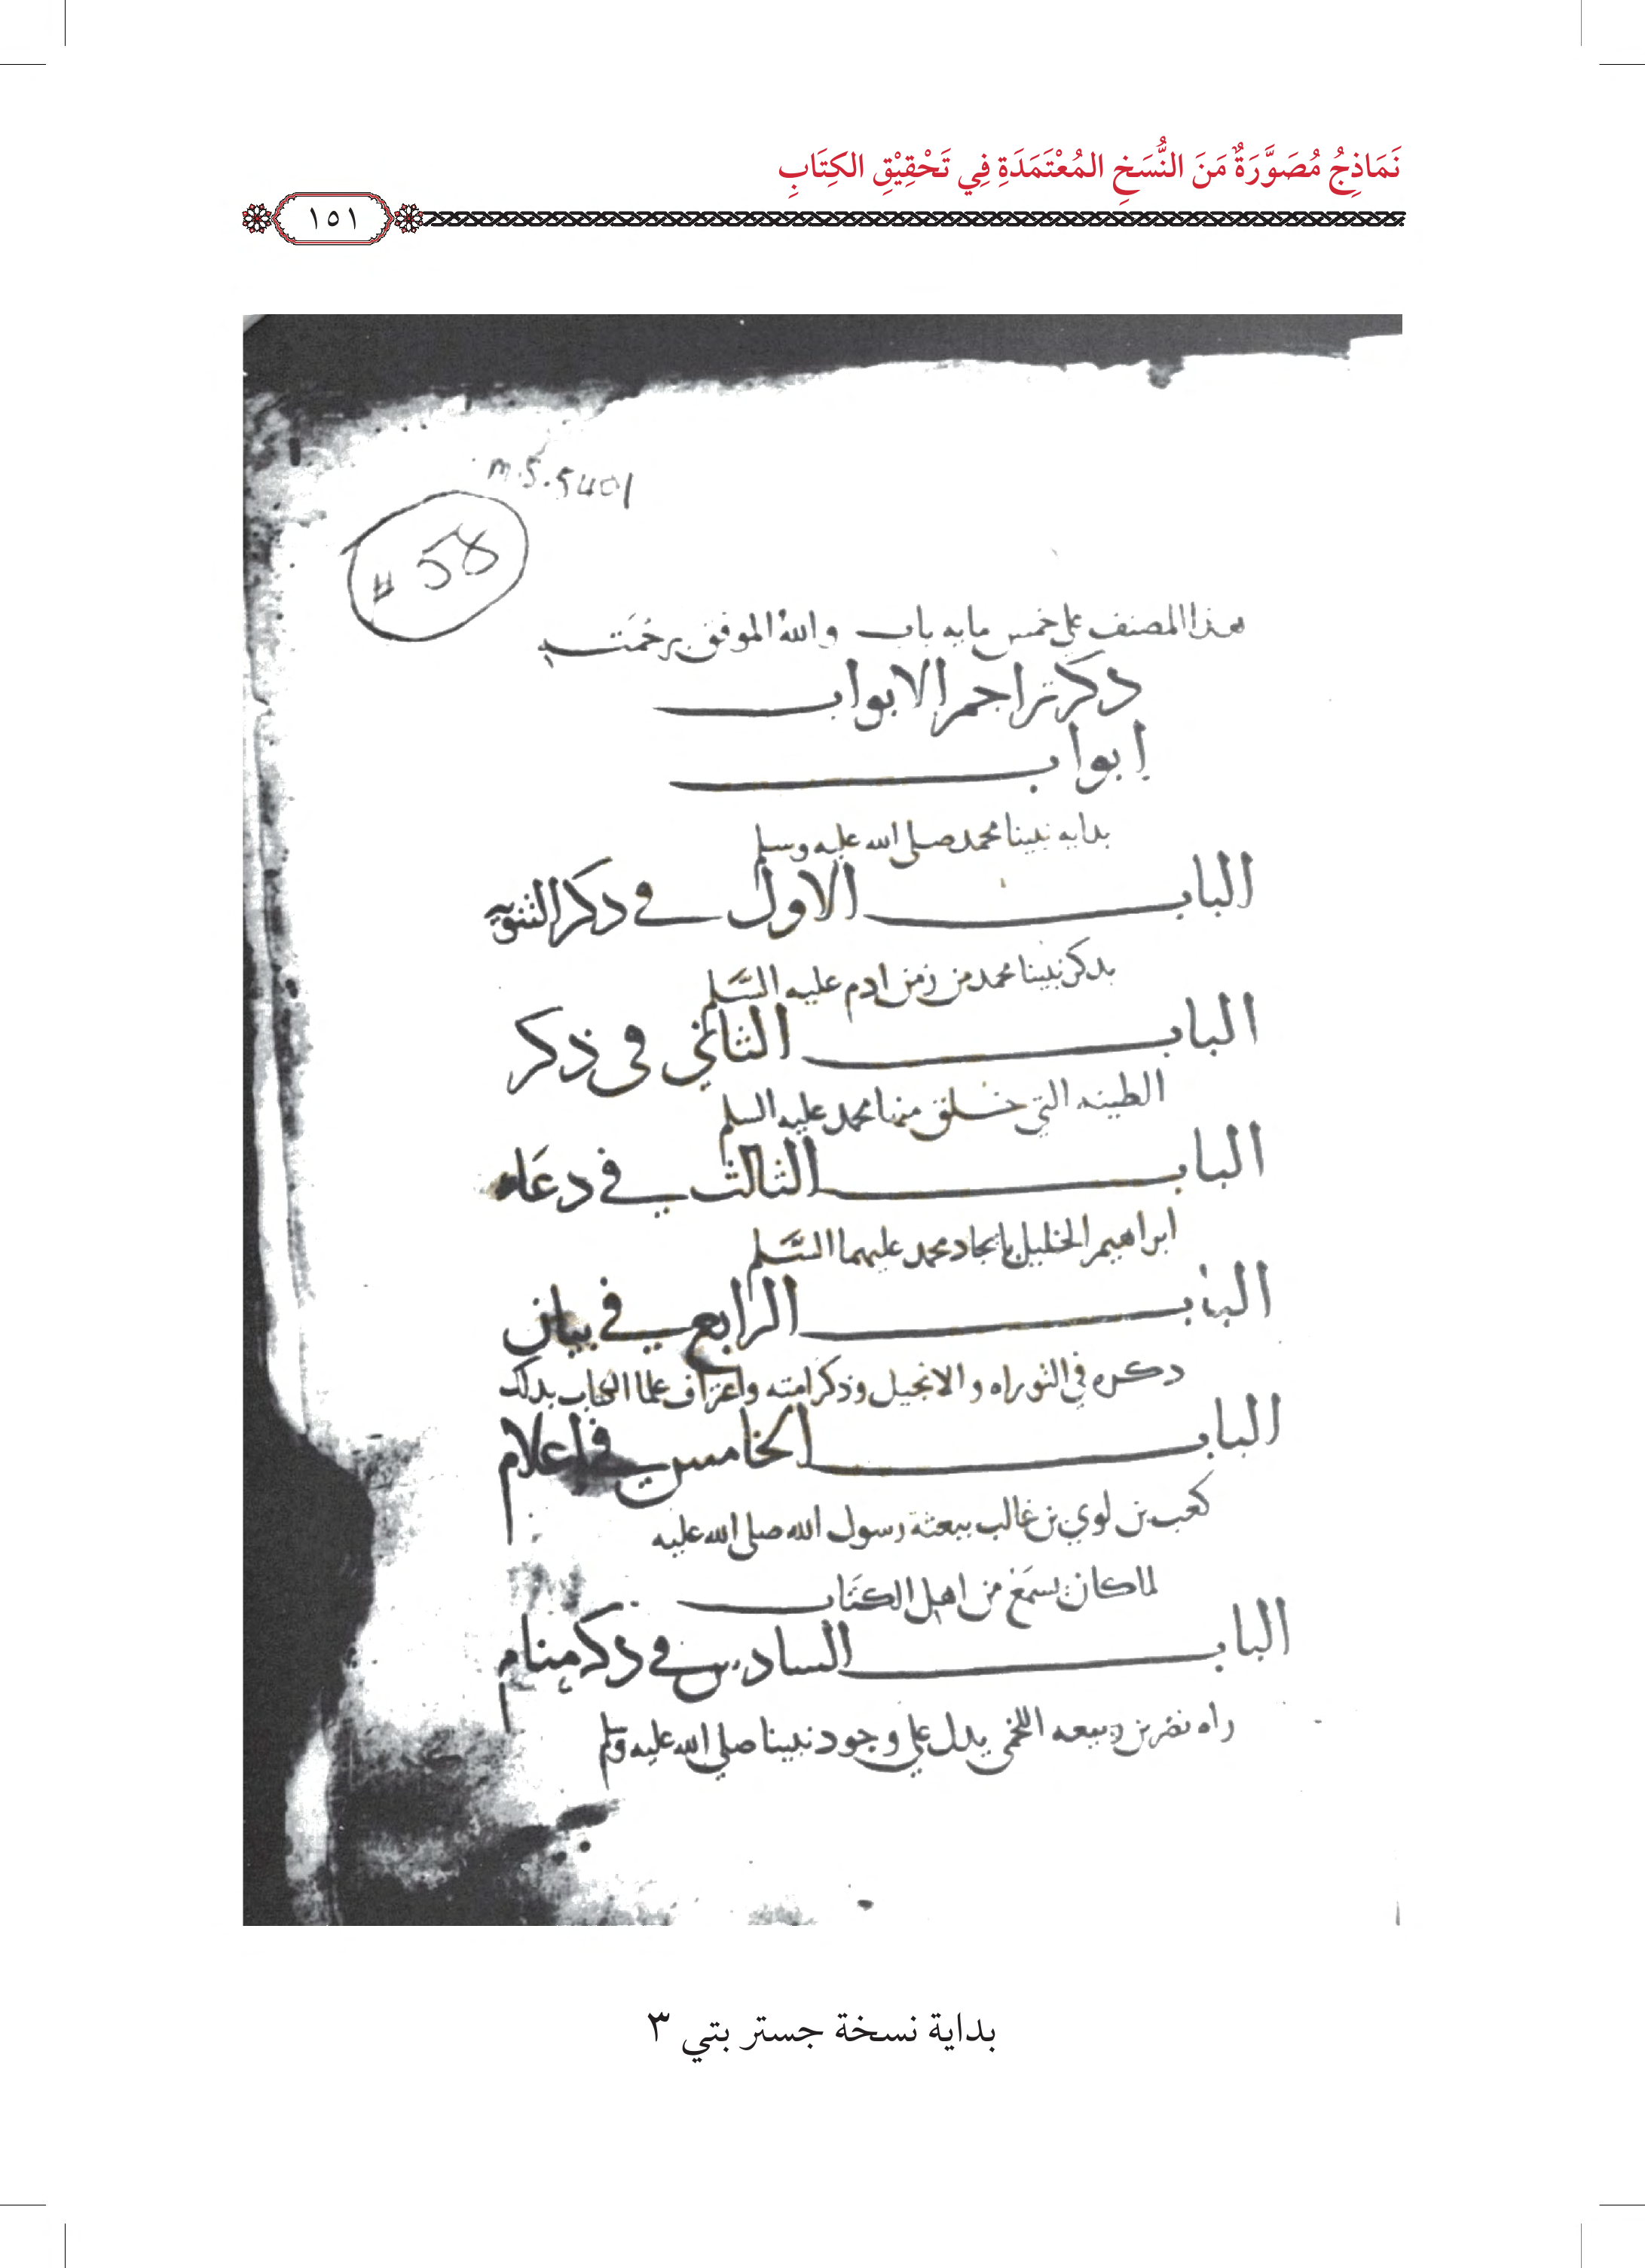 نَمَاذِجُ مُصَوَّرَةٌ مَنَ النُّسَخِ المُعْتَمَدَةِ فِي تَحْقِيْقِ الكِتَابِ
١٥١
m.s.5401
# 58
هذا المصنف على خمس مايه باب والله الموفق برحمته
ذكر تراجم الابواب
ابواب
بدايه نبينا محمد صلى الله عليه وسلم
الباب الاول في ذكر التنويه
بذكر نبينا محمد من زمن ادم عليه السَّلم
الباب الثاني في ذكر
الطينه التي خلق منها محمد عليه السلم
الباب الثالث في دعَاء
ابراهيم الخليل بايجاد محمد عليهما السَّلم
الباب الرابع في بيان
ذكره في التوراه والانجيل وذكر امته واعتراف علما الكتاب بذلك
الباب الخامس في اعلام
كعب بن لوي بن غالب ببعثة رسول الله صلى الله عليه
لما كان يسمَع من اهل الكتَاب
الباب السادس في ذكر منام
راه نصر بن ربيعه اللخمي يدل على وجود نبينا صلى الله عليه وسلم
بداية نسخة جستر بتي ٣